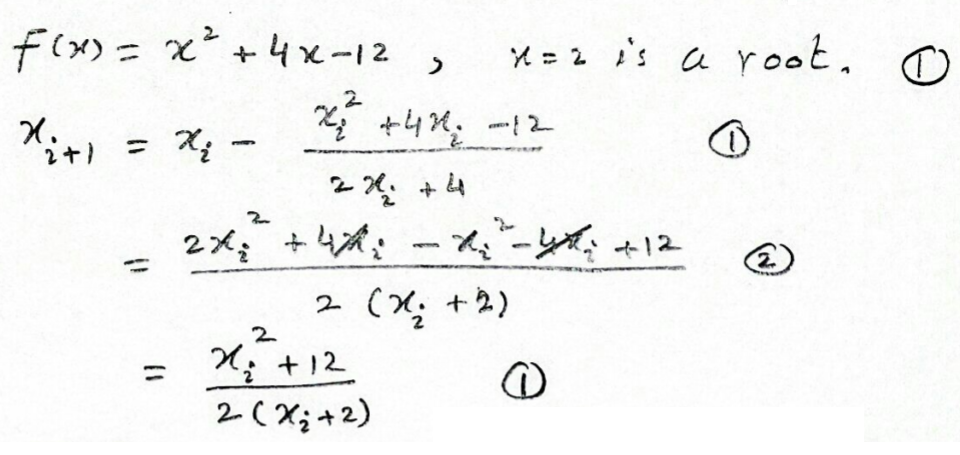 f(x) = x² + 4x - 12 , x = 2 is a root. ①
xᵢ₊₁ = xᵢ - (xᵢ² + 4xᵢ - 12) / (2xᵢ + 4) ①
= (2xᵢ² + 4xᵢ - xᵢ² - 4xᵢ + 12) / (2 (xᵢ + 2)) ②
= (xᵢ² + 12) / (2 (xᵢ + 2)) ①